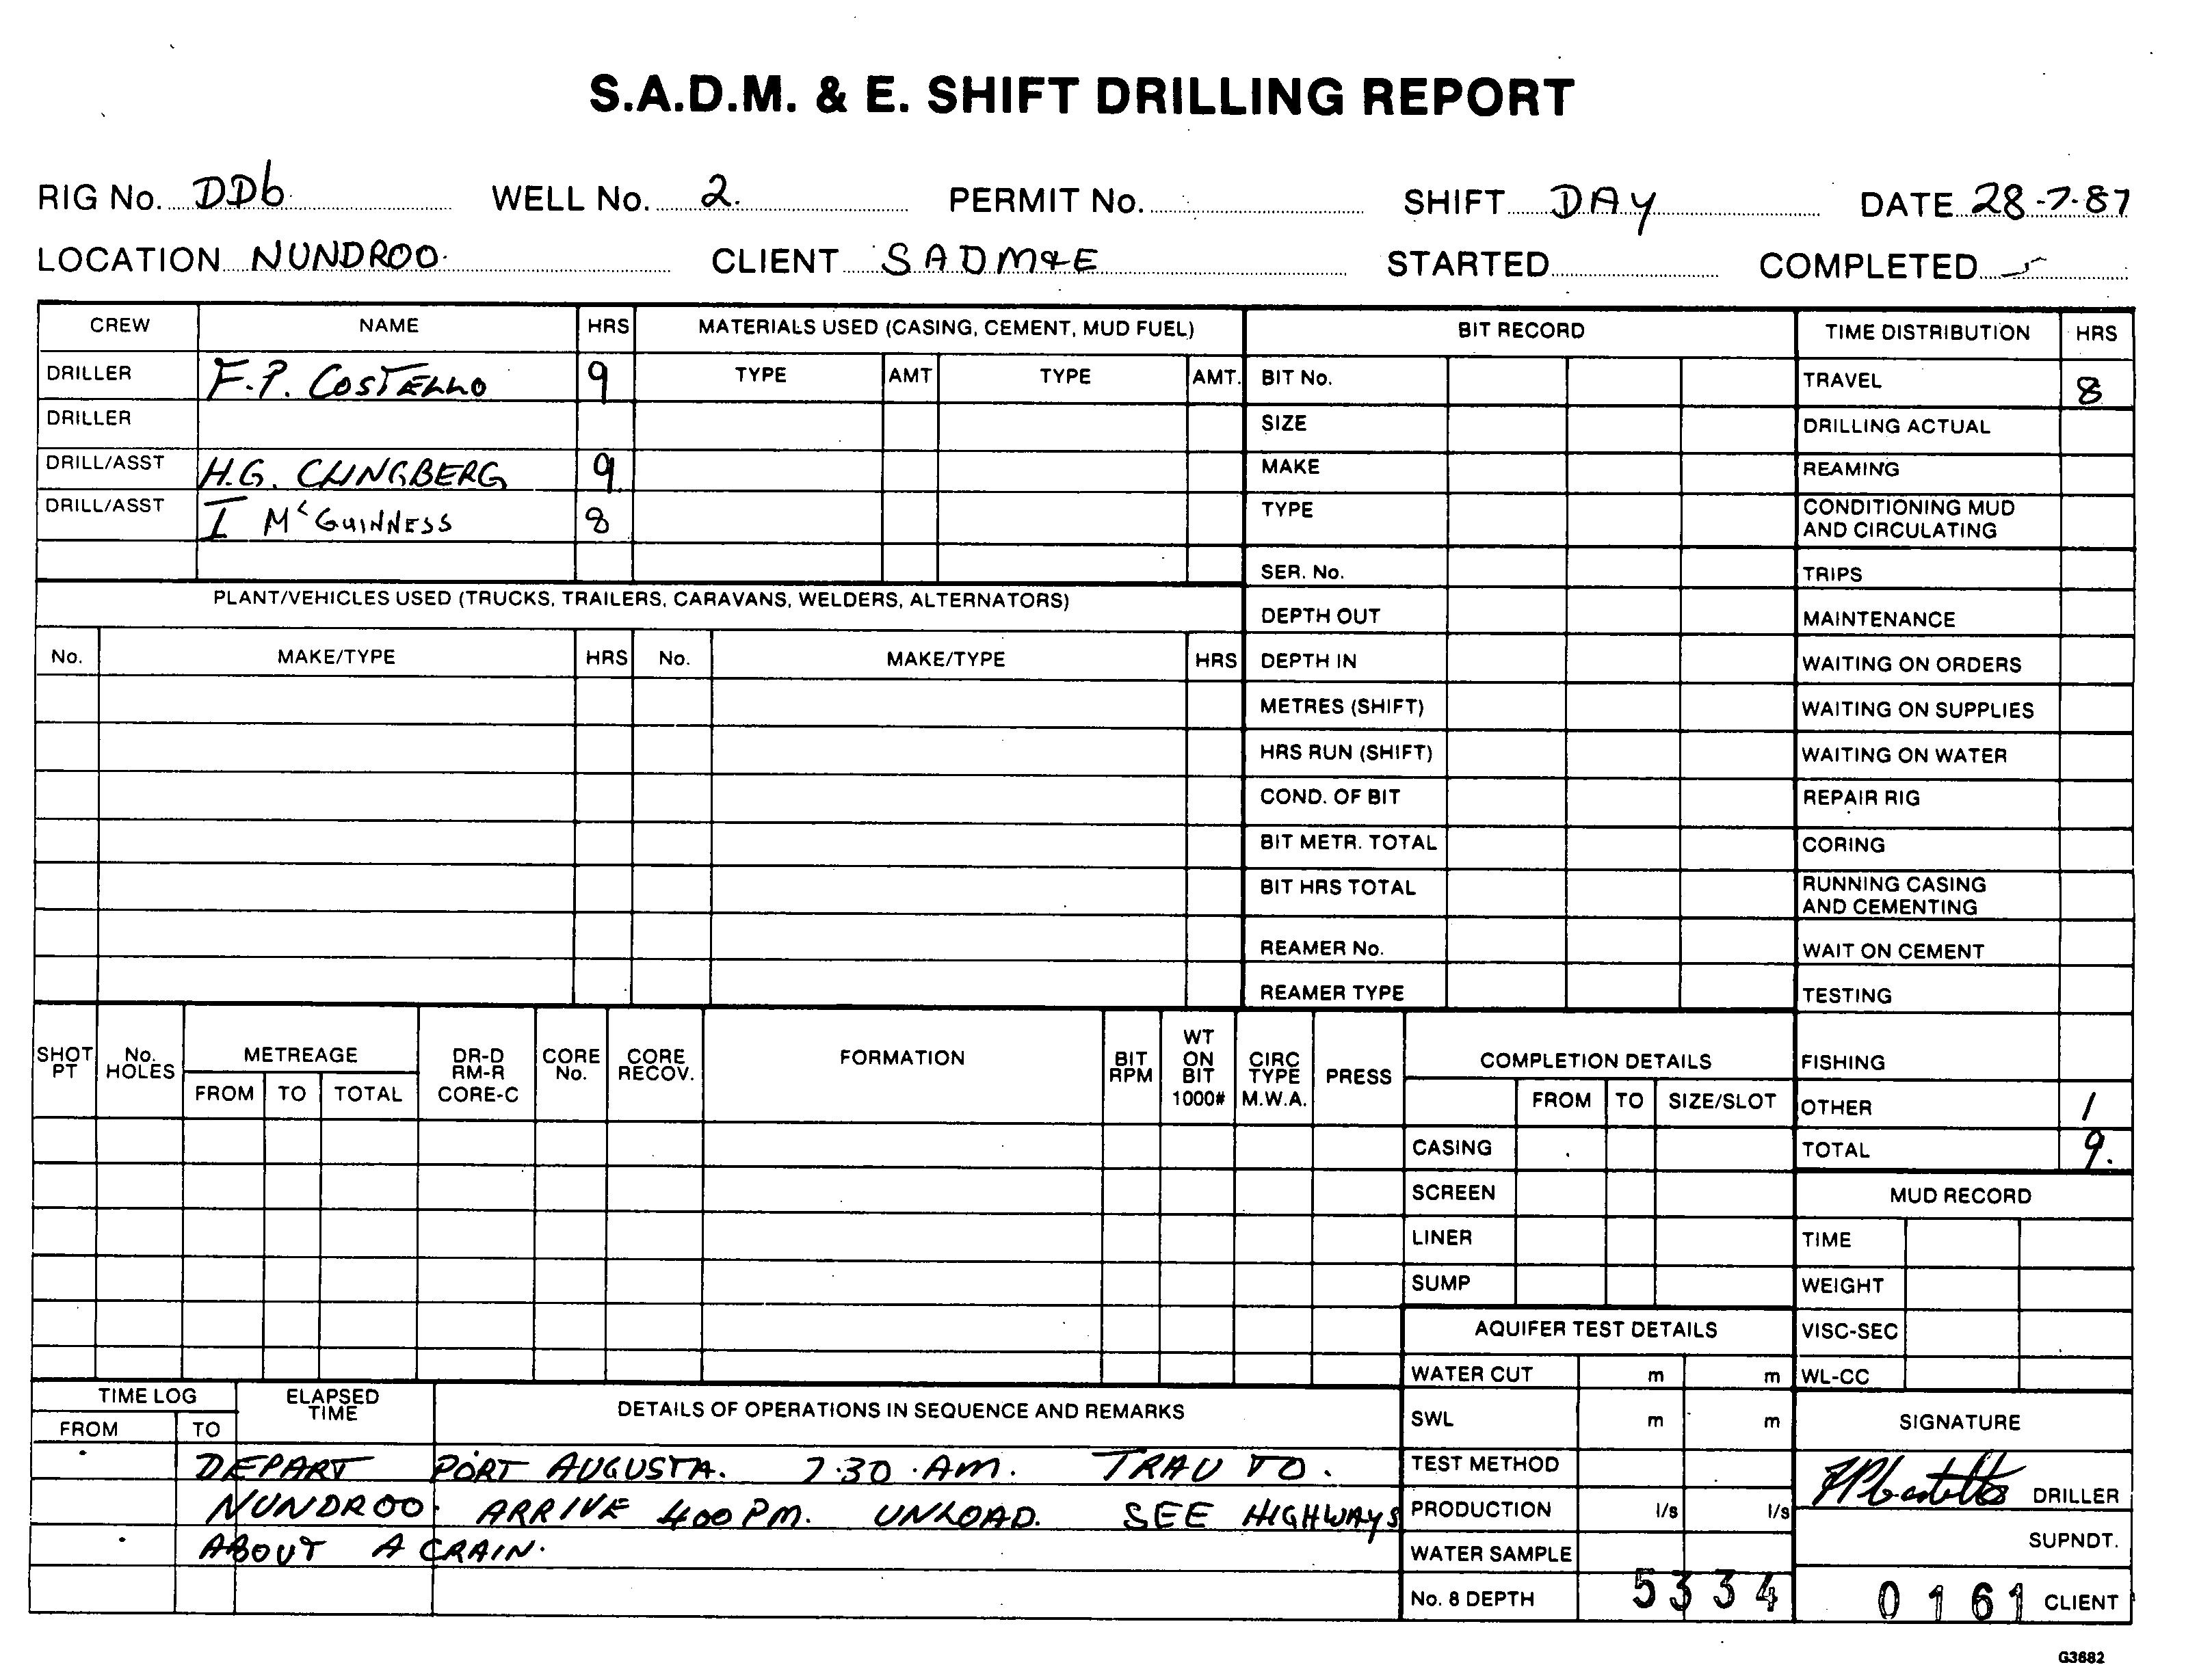 S.A.D.M. & E. SHIFT DRILLING REPORT
RIG No. DD6 WELL No. 2. PERMIT No. SHIFT DAY DATE 28-7-87
LOCATION NUNDROO. CLIENT SADM&E STARTED COMPLETED
CREW NAME HRS MATERIALS USED (CASING, CEMENT, MUD FUEL) BIT RECORD TIME DISTRIBUTION HRS
DRILLER F.P. COSTELLO 9 TYPE AMT TYPE AMT. BIT No. TRAVEL 8
DRILLER SIZE DRILLING ACTUAL
DRILL/ASST H.G. CLINGBERG 9 MAKE REAMING
DRILL/ASST I McGUINNESS 8 TYPE CONDITIONING MUD
AND CIRCULATING
SER. No. TRIPS
PLANT/VEHICLES USED (TRUCKS, TRAILERS, CARAVANS, WELDERS, ALTERNATORS)
DEPTH OUT MAINTENANCE
No. MAKE/TYPE HRS No. MAKE/TYPE HRS DEPTH IN WAITING ON ORDERS
METRES (SHIFT) WAITING ON SUPPLIES
HRS RUN (SHIFT) WAITING ON WATER
COND. OF BIT REPAIR RIG
BIT METR. TOTAL CORING
BIT HRS TOTAL RUNNING CASING
AND CEMENTING
REAMER No. WAIT ON CEMENT
REAMER TYPE TESTING
SHOT PT No. HOLES METREAGE DR-D RM-R CORE-C CORE No. CORE RECOV. FORMATION BIT RPM WT ON BIT 1000# CIRC TYPE M.W.A. PRESS COMPLETION DETAILS FISHING
FROM TO TOTAL FROM TO SIZE/SLOT OTHER 1
CASING TOTAL 9.
SCREEN MUD RECORD
LINER TIME
SUMP WEIGHT
AQUIFER TEST DETAILS VISC-SEC
WATER CUT m m WL-CC
TIME LOG ELAPSED TIME DETAILS OF OPERATIONS IN SEQUENCE AND REMARKS
FROM TO SWL m m SIGNATURE
DEPART PORT AUGUSTA. 7.30 AM. TRAV TO. TEST METHOD
NUNDROO. ARRIVE 400 PM. UNLOAD. SEE HIGHWAYS PRODUCTION l/s l/s DRILLER
ABOUT A CRAIN. WATER SAMPLE SUPNDT.
No. 8 DEPTH 5334 0161 CLIENT
G3682